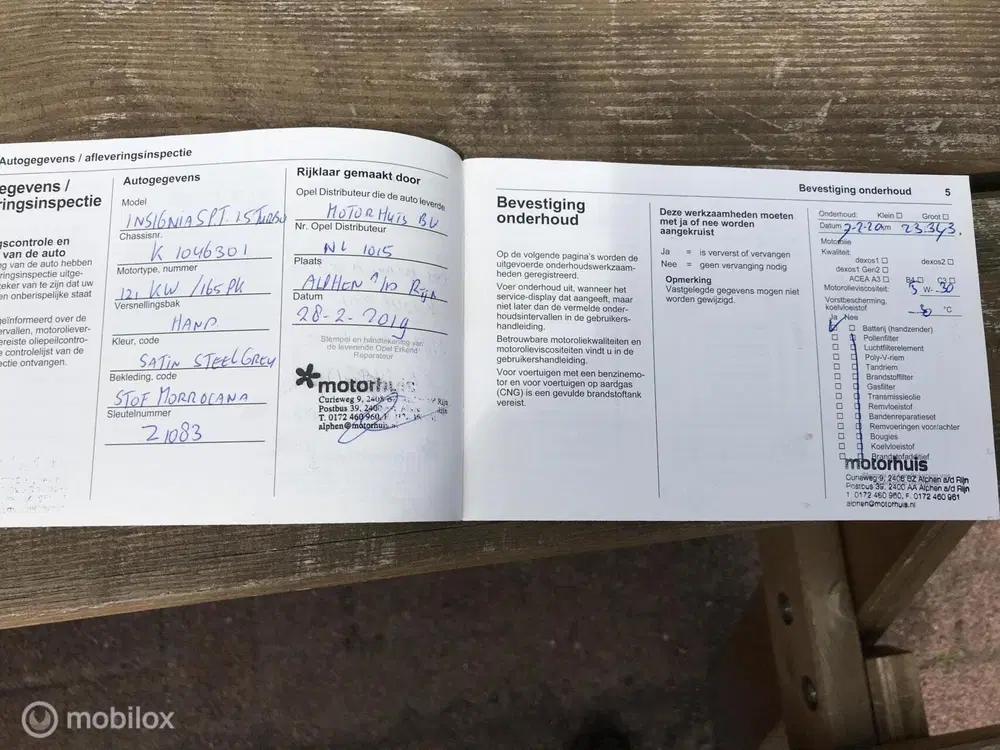 Autogegevens / afleveringsinspectie
egevens /
ringsinspectie
gscontrole en
van de auto
ng van de auto hebben
eringsinspectie uitge-
zeker van te zijn dat uw
en onberispelijke staat
geïnformeerd over de
ervallen, motoroliever-
ereiste oliepeilcontro-
e controlelijst van de
ectie ontvangen.
Autogegevens
Model
INSIGNIA SPT. 1.5 TURBO
Chassisnr.
K 1046301
Motortype, nummer
121 KW /165 PK
Versnellingsbak
HAND
Kleur, code
SATIN STEEL GREY
Bekleding, code
STOF MORROCANA
Sleutelnummer
Z1083
Rijklaar gemaakt door
Opel Distributeur die de auto leverde
MOTORHUIS BV
Nr. Opel Distributeur
NL 1015
Plaats
ALPHEN A/D RIJN
Datum
28-2-2019
Stempel en handtekening van
de leverende Opel Erkend
Reparateur
motorhuis
Curieweg 9, 2408 Rijn
Postbus 39, 2400 AA Alphen a/d Rijn
T. 0172 460 960, F.
alphen@motorhuis.
Bevestiging onderhoud 5
Bevestiging
onderhoud
Op de volgende pagina's worden de
uitgevoerde onderhoudswerkzaam-
heden geregistreerd.
Voer onderhoud uit, wanneer het
service-display dat aangeeft, maar
niet later dan de vermelde onder-
houdsintervallen in de gebruikers-
handleiding.
Betrouwbare motoroliekwaliteiten en
motorolieviscositeiten vindt u in de
gebruikershandleiding.
Voor voertuigen met een benzinemo-
tor en voor voertuigen op aardgas
(CNG) is een gevulde brandstoftank
vereist.
Deze werkzaamheden moeten
met ja of nee worden
aangekruist
Ja = is ververst of vervangen
Nee = geen vervanging nodig
Opmerking
Vastgelegde gegevens mogen niet
worden gewijzigd.
Onderhoud: Klein Groot
Datum 7-2-20 km 23.343,
Motorolie
Kwaliteit:
dexos1 dexos2
dexos1 Gen2
ACEA A3 B4 C3
Motorolieviscositeit: 5 W- 30
Vorstbescherming,
koelvloeistof °C
Ja Nee
Batterij (handzender)
Pollenfilter
Luchtfilterelement
Poly-V-riem
Tandriem
Brandstoffilter
Gasfilter
Transmissieolie
Remvloeistof
Bandenreparatieset
Remvoeringen voor/achter
Bougies
Koelvloeistof
Brandstofadditief
motorhuis
Curieweg 9, 2408 BZ Alphen a/d Rijn
Postbus 39, 2400 AA Alphen a/d Rijn
T. 0172 460 960, F. 0172 460 961
alphen@motorhuis.nl
mobilox